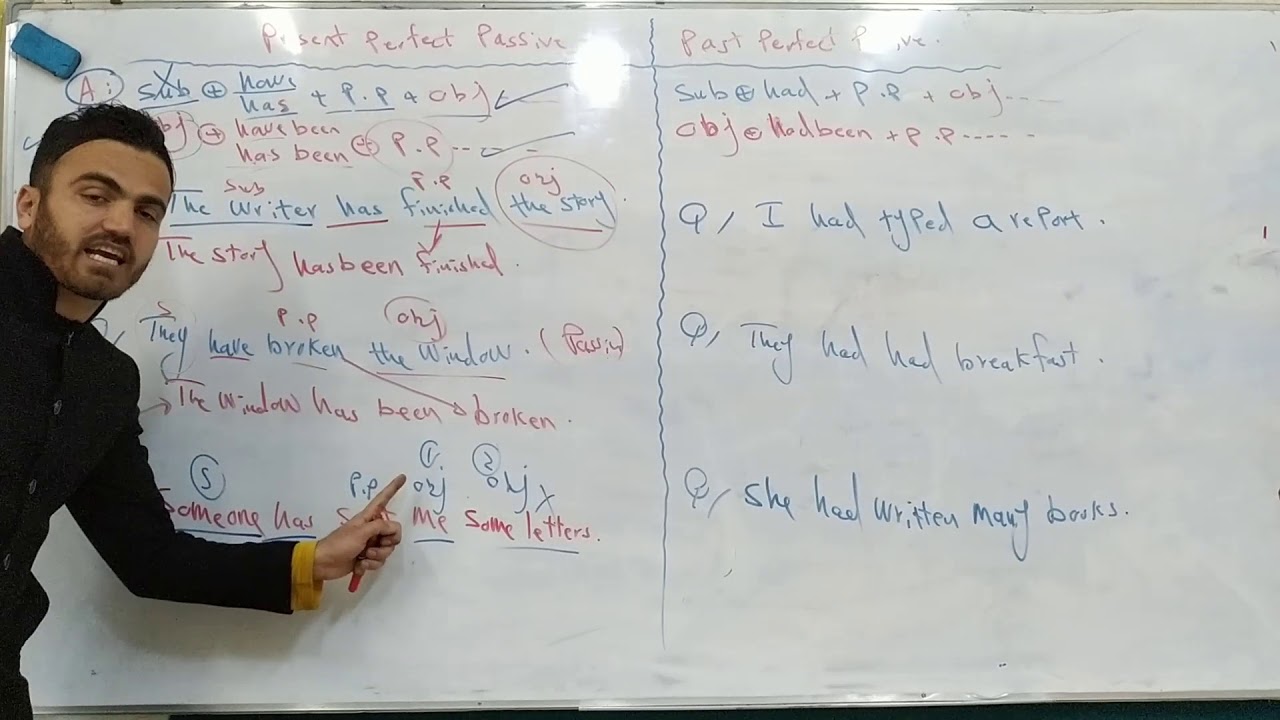 Present Perfect Passive
A: sub + have has + P.P + obj
obj + have been has been + P.P ---
sub P.P obj
The writer has finished the story.
The story has been finished.
S P.P obj
They have broken the window. (Passive)
The window has been broken.
S P.P 1 obj 2 obj x
Someone has me some letters.
Past Perfect
Sub + had + P.P + obj ----
obj + had been + P.P -----
Q/ I had typed a report.
Q/ They had had breakfast.
Q/ She had written many books.